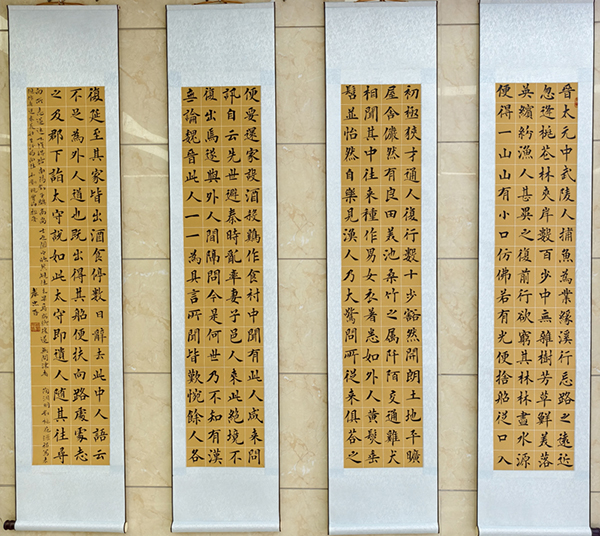 晉太元中武陵人捕魚為業緣溪行忘路之遠近
忽逢桃花林夾岸數百步中無雜樹芳草鮮美落
英繽紛漁人甚異之復前行欲窮其林林盡水源
便得一山山有小口仿佛若有光便捨船從口入
初極狹才通人復行數十步豁然開朗土地平曠
屋舍儼然有良田美池桑竹之屬阡陌交通雞犬
相聞其中往來種作男女衣著悉如外人黃髮垂
髫並怡然自樂見漁人乃大驚問所從來俱答之
便要還家設酒殺雞作食村中聞有此人咸來問
訊自云先世避秦時亂率妻子邑人來此絕境不
復出焉遂與外人間隔問今是何世乃不知有漢
無論魏晉此人一一為具言所聞皆歎惋餘人各
復延至其家皆出酒食停數日辭去此中人語云
不足為外人道也既出得其船便扶向路處處志
之及郡下詣太守說如此太守即遣人隨其往尋
向所志遂迷不復得路南陽劉子驥高尚士也聞之欣然規往未果尋病終後遂無問津者